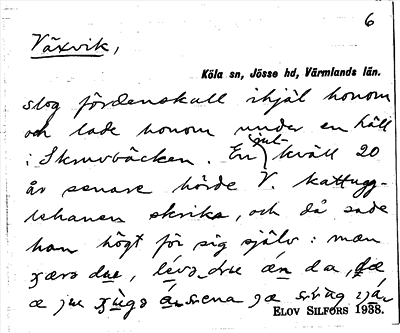 6
Växvik,
Köla sn, Jösse hd, Värmlands län.
slog fördenskull ihjäl honom
och lade honom under en häll
i Skruvbäcken. En jul-kväll 20
år senare hörde V. kattugg-
lehanen skrika, och då sade
han högt för sig själv: men
du, du än da,
ELOV SILFORS 1938.